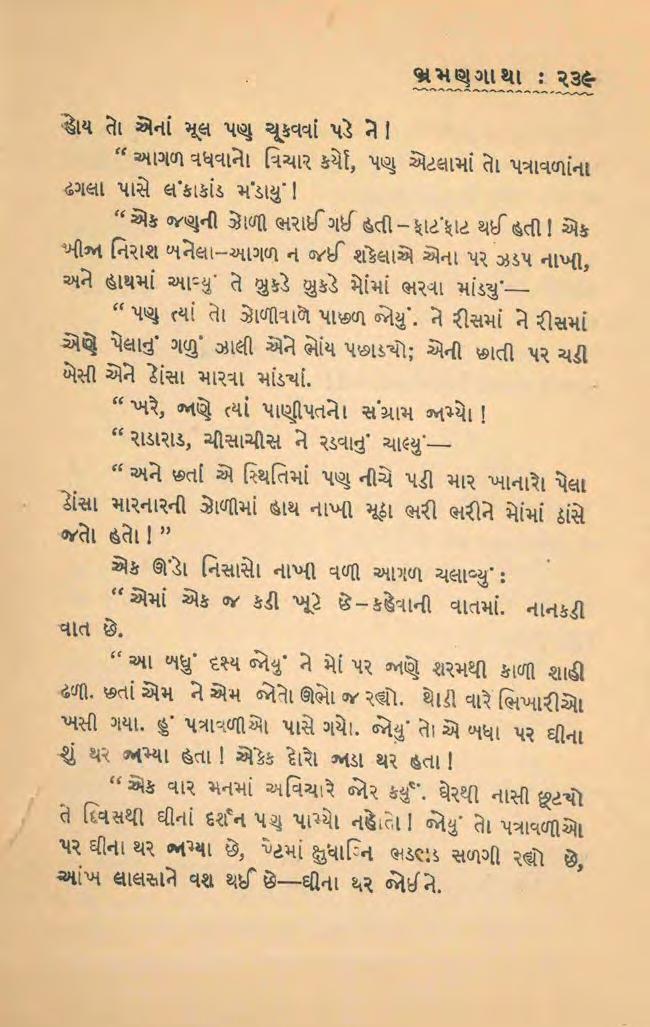 ભ્રમણગાથા : ૨૩૯
હોય તો એનાં મૂલ પણ ચૂકવવાં પડે ને !
“ આગળ વધવાનો વિચાર કર્યો, પણ એટલામાં તો પત્રાવળાંના
ઢગલા પાસે લંકાકાંડ મંડાયું !
“ એક જણની ઝોળી ભરાઈ ગઈ હતી – ફાટંફાટ થઈ હતી ! એક
બીજા નિરાશ બનેલા–આગળ ન જઈ શકેલાએ એના પર ઝડપ નાખી,
અને હાથમાં આવ્યું તે બુકડે બુકડે મોંમાં ભરવા માંડ્યું—
“ પણ ત્યાં તો ઝોળીવાળે પાછળ જોયું. ને રીસમાં ને રીસમાં
એણે પેલાનું ગળું ઝાલી એને ભોંય પછાડ્યો; એની છાતી પર ચડી
બેસી એને ઠોંસા મારવા માંડ્યાં.
“ ખરે, જાણે ત્યાં પાણીપતનો સંગ્રામ જામ્યો !
“ રાડારાડ, ચીસાચીસ ને રડવાનું ચાલ્યું—
“ અને છતાં એ સ્થિતિમાં પણ નીચે પડી માર ખાનારો પેલા
ઠોંસા મારનારની ઝોળીમાં હાથ નાખી મૂઠા ભરી ભરીને મોંમાં ઠાંસે
જતો હતો ! ”
એક ઊંડો નિસાસો નાખી વળી આગળ ચલાવ્યું :
“ એમાં એક જ કડી ખૂટે છે – કહેવાની વાતમાં. નાનકડી
વાત છે.
“ આ બધું દૃશ્ય જોયું ને મોં પર જાણે શરમથી કાળી શાહી
ઢળી. છતાં એમ ને એમ જોતો ઊભો જ રહ્યો. થોડી વારે ભિખારીઓ
ખસી ગયા. હું પત્રાવળીઓ પાસે ગયો. જોયું તો એ બધા પર ઘીના
શું થર જામ્યા હતા ! એકેક દોરો જાડા થર હતા !
“ એક વાર મનમાં અવિચારે જોર કર્યું. ઘેરથી નાસી છૂટ્યો
તે દિવસથી ઘીનાં દર્શન પણ પામ્યો નહોતો ! જોયું તો પત્રાવળીઓ
પર ઘીના થર જામ્યા છે, પેટમાં ક્ષુધાગ્નિ ભડભડ સળગી રહ્યો છે,
આંખ લાલસાને વશ થઈ છે—ઘીના થર જોઈને.